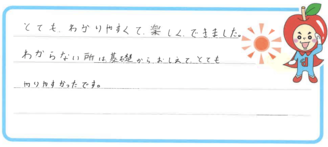 とても、わかりやすくて、楽しく、できました。
わからない所は基礎から、おしえて、とても
切りやすかったです。